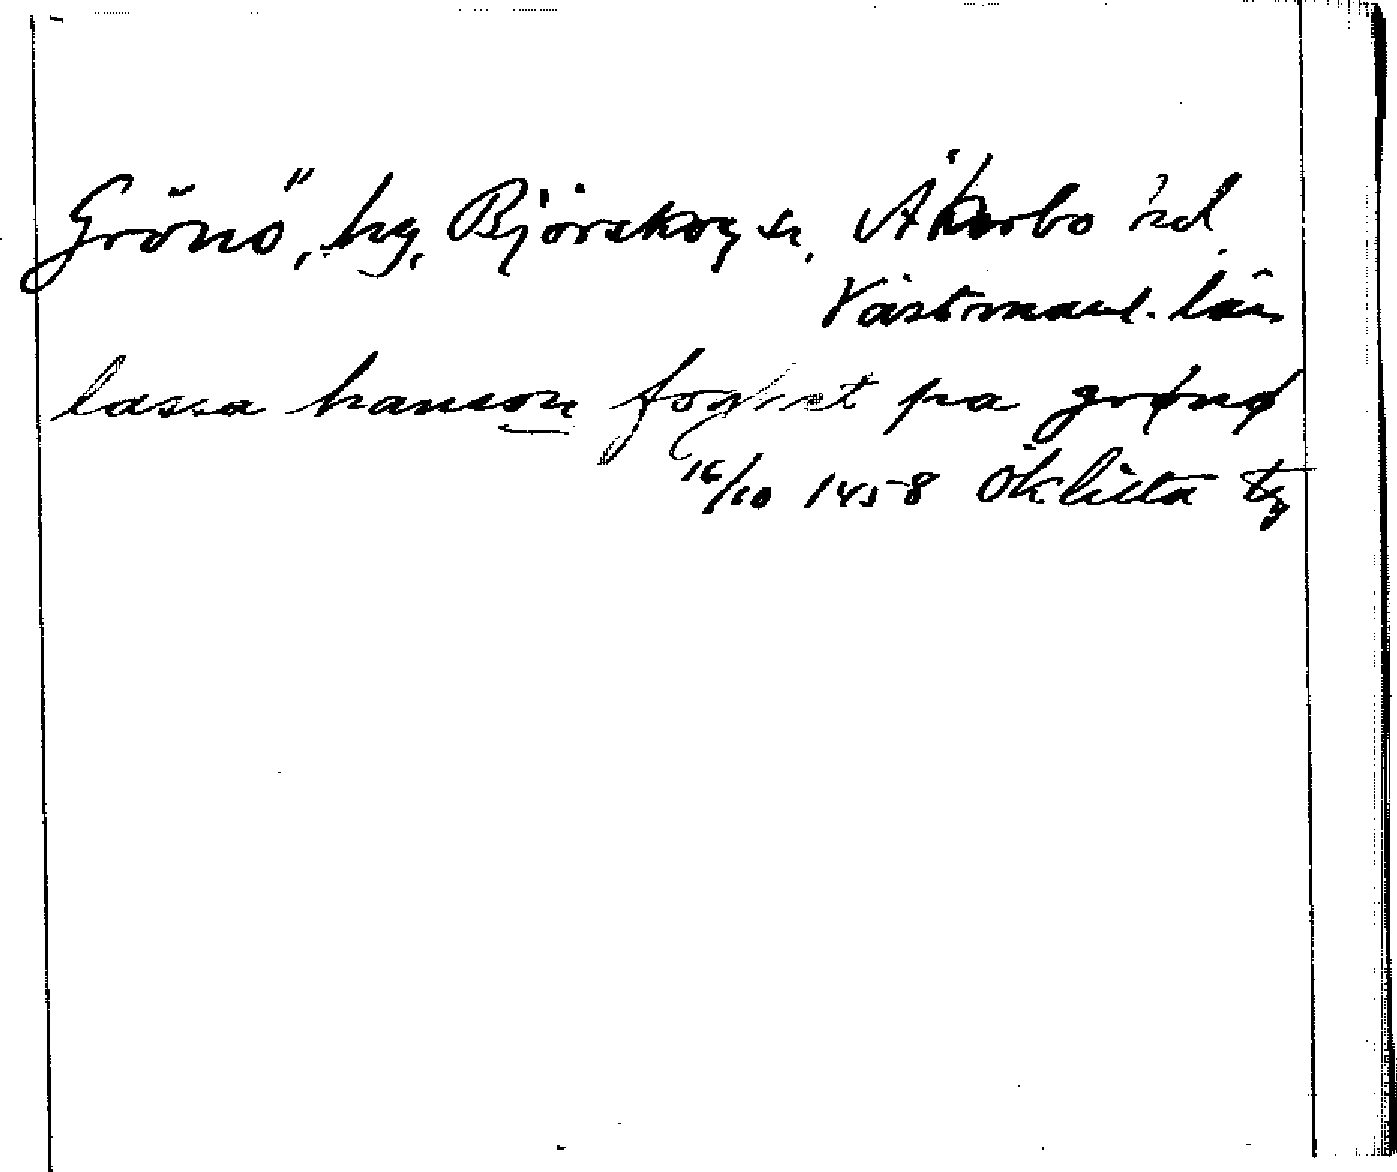 Grönö, hg, Björskog sn, Åkerbo hd
Västmanl. län
lassa hanson foghet pa grønø
16/10 1458 Öklista